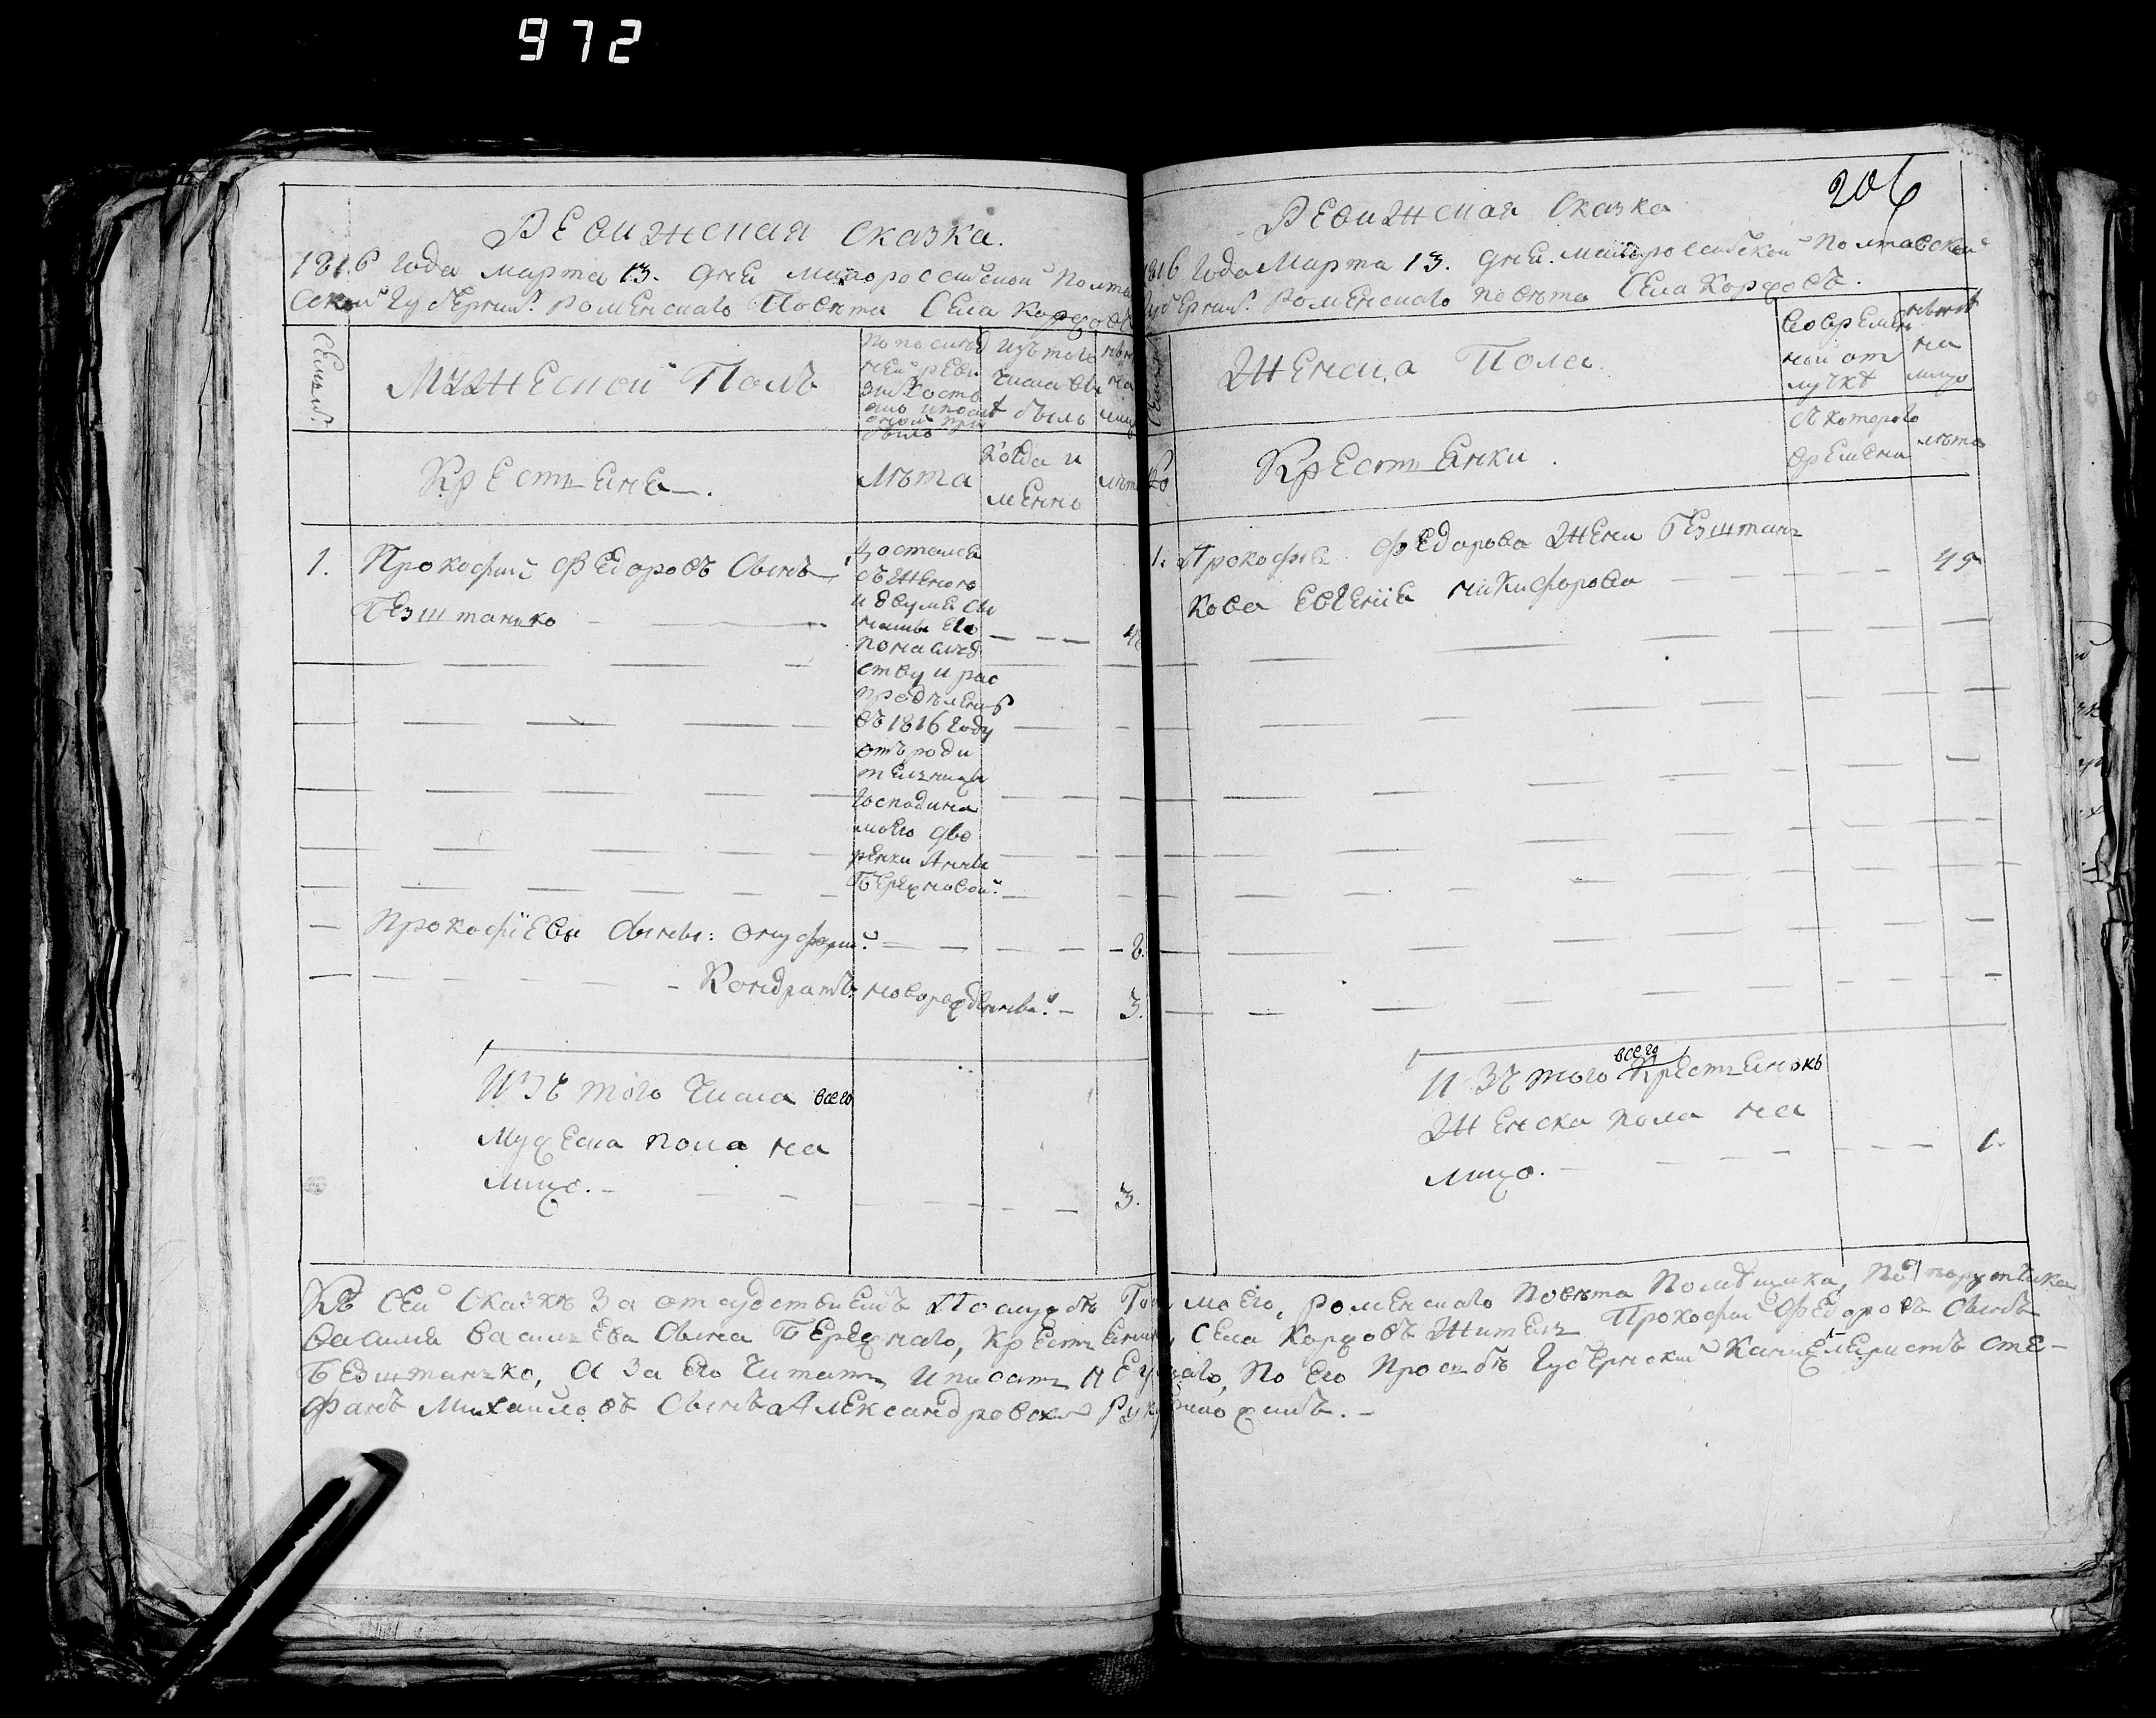 972
206
Ревижская Сказка.
1816 Года Марта 13. дня Малоросстиской Полтав
ской Губернии. Роменскаго Повета Села Коржовъ
Семьи.
Мужеской Полъ
По последней ревизии состояло и после оной прибыло
Изъ того числа выбыло
ныне на лицо
Крестяне.
Лета
Когда именно
лета
1. Прокофий Федоровъ Сынъ
Безштанько
достался
съ женою
и двумя сы
нами его
по наслед
ству и рас
пределению
въ 1816 Году
отъ роди
тельницы
Господина
моего дво
рянки Анны
Бережновой
Прокофиевы Сыны: Онуфрий - 8.
Кондратъ новорожденный. - 3.
Изъ того Числа всего
Мужеска пола на
лицо. - 3.
Ревижская Сказка
1816 Года Марта 13. дня. Малоросстиской Полтавской
Губернии. Роменскаго Повета Села Коржовъ.
Женска Пола.
Во времен
ной от
лучке
ныне
на
лицо
Крестянки.
Съ котораго
времени
лета
1. Прокофия Федорова Жена Безштань
кова Евгения Никифорова - 45
Изъ того всего Крестянокъ
Женска пола на
лицо. - 1.
Къ Сей Сказке За отсудствиемъ По службе моего, Роменскаго Повета Помещика, Подпорутчика
Василия Васильева Сына Бережнаго, Крестянинъ, Села Коржовъ Житель Прокофий Федоровъ Сынъ
Безштанько, А За его Читать и писать Неумеющаго, По Его Прозьбе Губернский Канцеляристъ Сте-
фанъ Михайловъ Сынъ Александровский Руку приложилъ. -